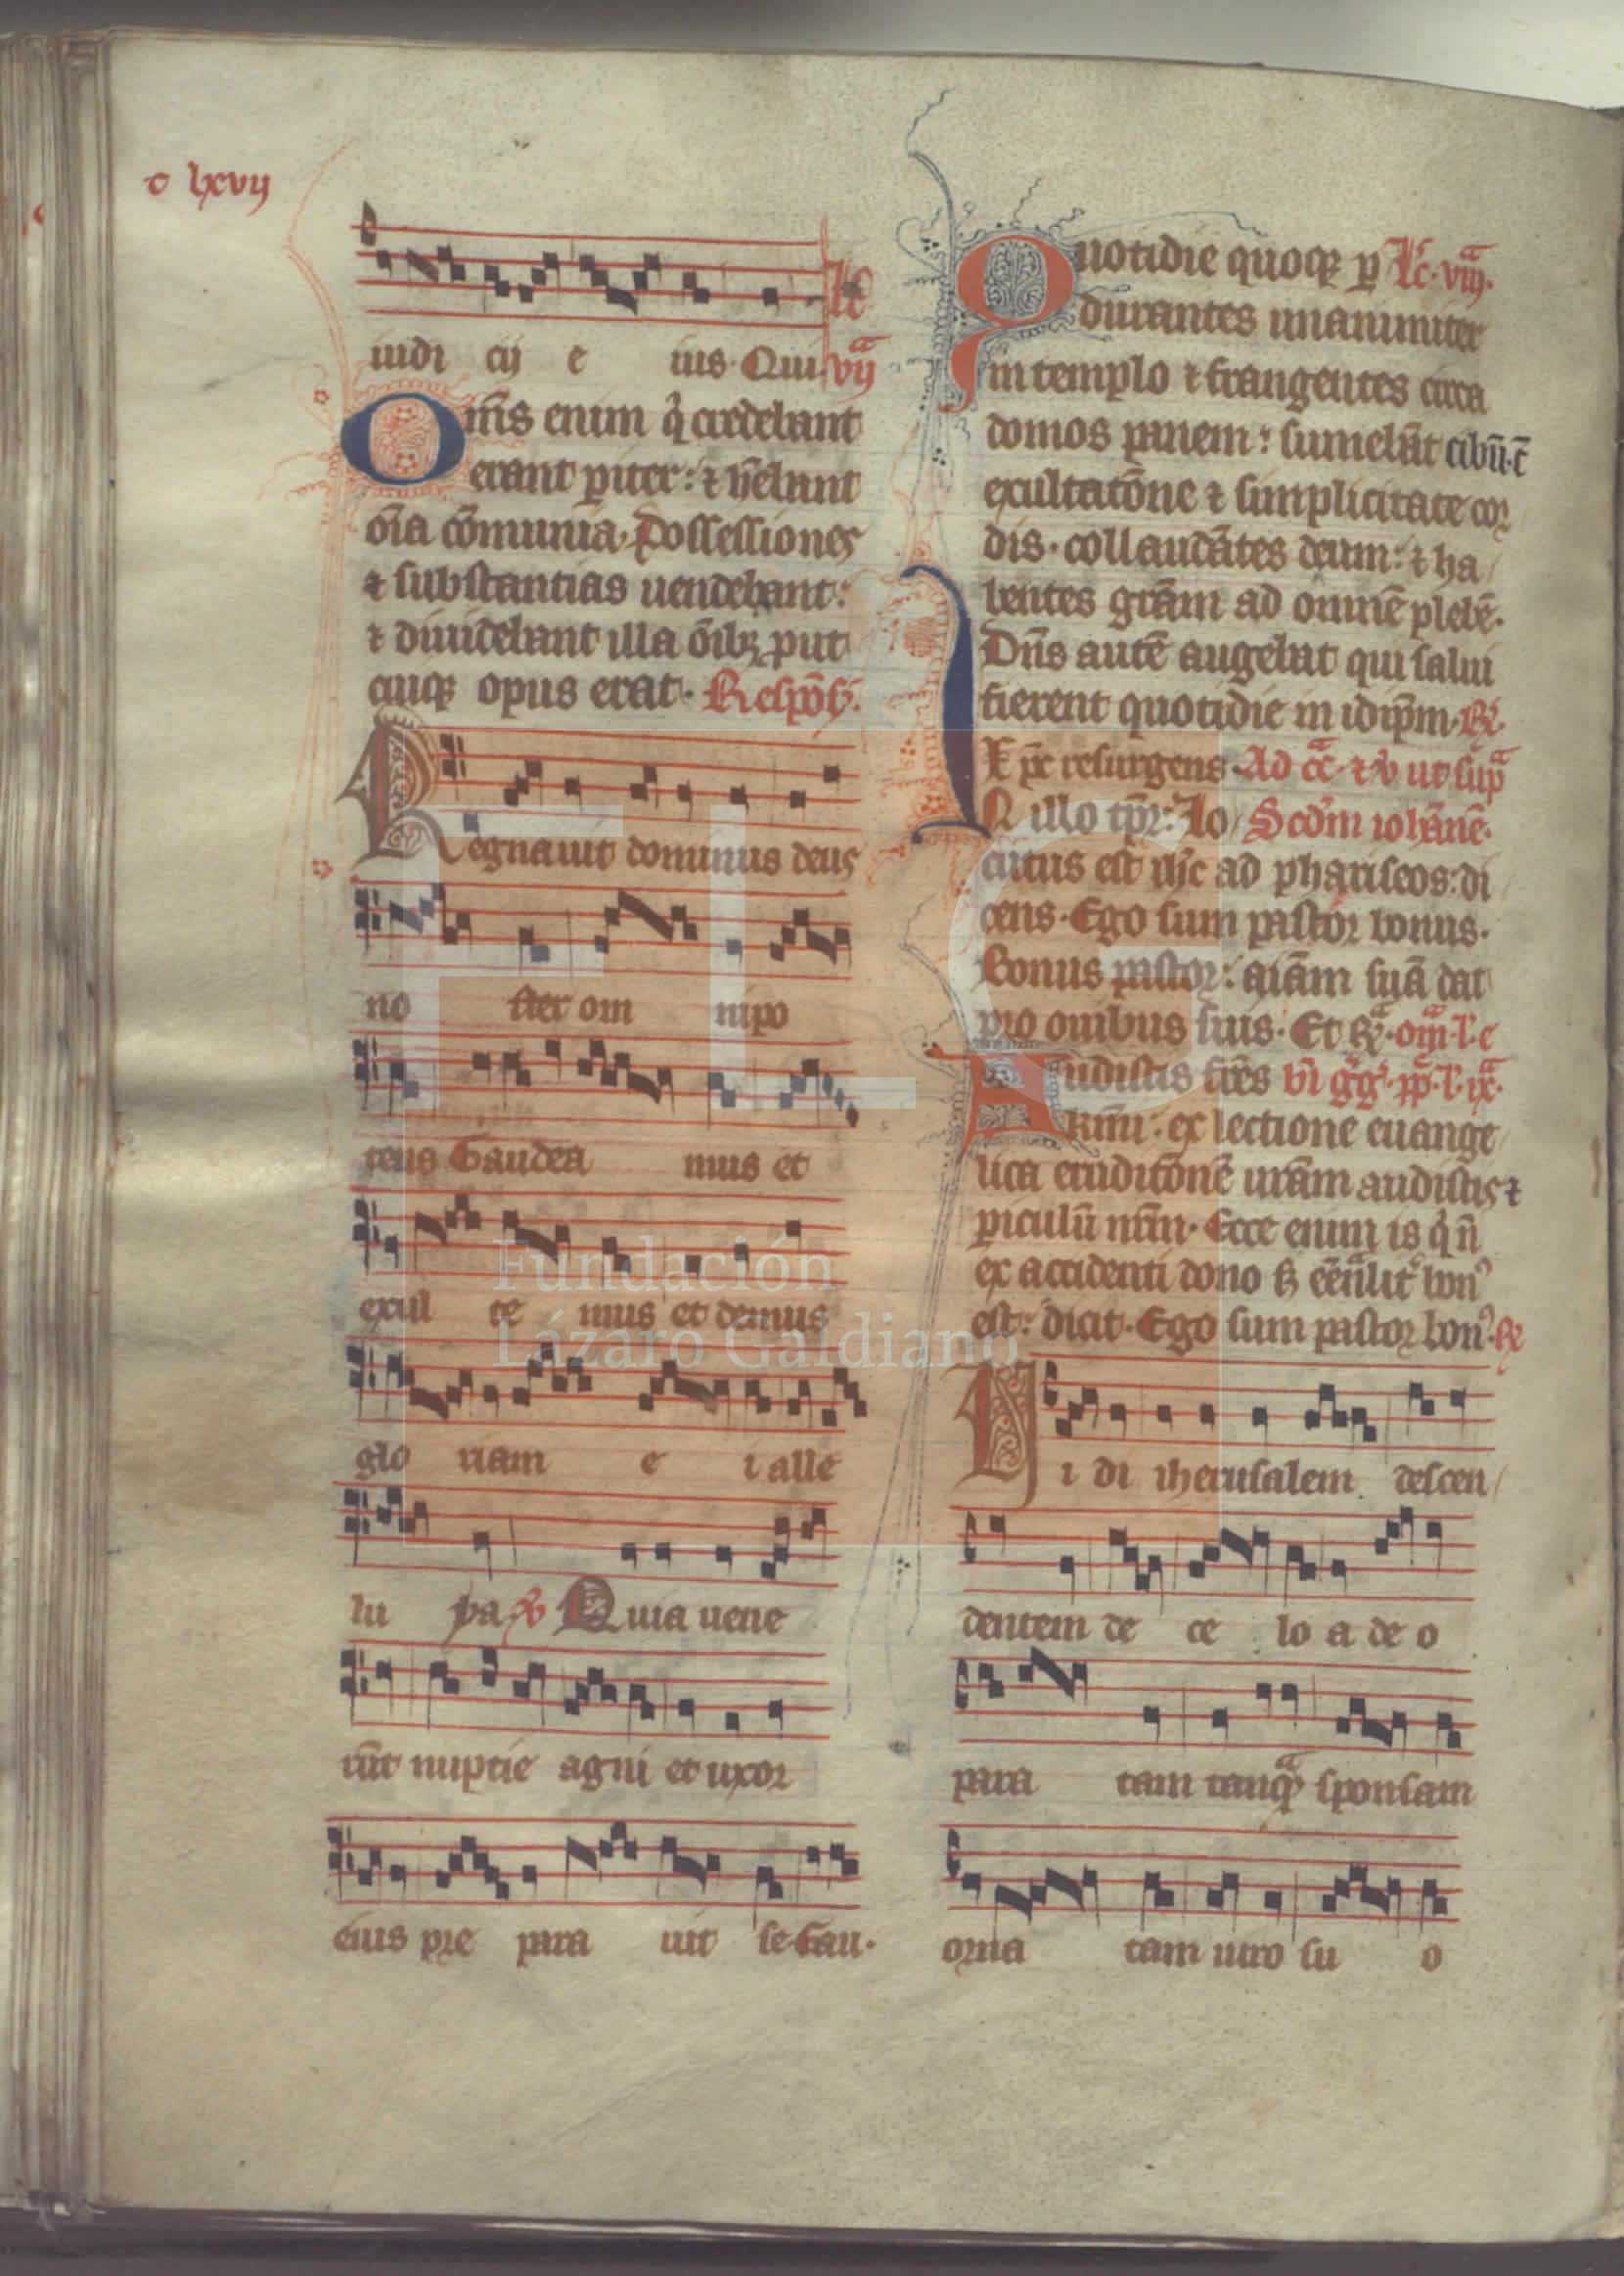 c lxvij
iudi cij e ius. Qui. Lc̃ vijª
Om̃s enim q̓ credebant
erant ꝑiter: ⁊ hẽbant
oĩa cõmunia. Possessiones
⁊ substantias uendebant:
⁊ diuidebant illa õibꝫ put
cuiqꝫ opus erat. Respõs.
Regnauit dominus deus
no ster om nipo
tens Gaudea mus et
exul te mus et demus
glo riam e i alle
lu ya ℣ Quia uene
rũt nuptie agni et uxor
eius pre para uit se. Gau.
Quotidie quoqꝫ ꝑ Lc̃. viijª.
durantes unanimiter
in templo ⁊ frangentes circa
domos panem: sumebãt cibũ. c̃
exultatõne ⁊ simplicitate cor
dis. collaudãtes deum: ⁊ ha
bentes grãm ad omnẽ plebẽ.
Dñs autẽ augebat qui salui
fierent quotidie in idip̃m. ℟.
Xp̃c resurgens. Ad cã. ⁊ ℣ ut supª
In illo tp̃r: Lo Scdm̃ iohãnẽ.
cutus est ih̃c ad phariseos: di
cens. Ego sum pastor bonus.
Bonus pastor: aĩam suã dat
pro ouibus suis. Et
Audistis fr̃es
kr̃mi: ex lectione euange
lica eruditõnẽ ur̃am audistis ⁊
ꝑiculũ nr̃m. Ecce enim is q̓ ñ
ex accidenti dono ẽẽñalit̓ bon᾿
est: dicit. Ego sum pastor bon᾿. ℟
Ui di iherusalem descen
dentem de ce lo a de o
para tam tanqª sponsam
orna tam uiro su o
FLG
Fundación
Lázaro Galdiano